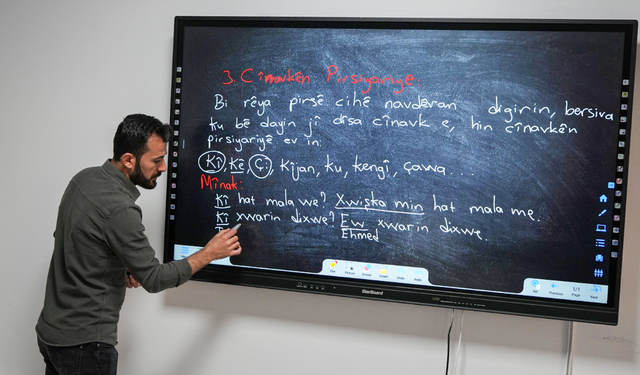 3. Cînavkên Pirsiyariyê.
Bi rêya pirsê cihê navdêran digirin, bersiva
ku bê dayin jî dîsa cînavk e, hin cînavkên
pirsiyariyê ev in:
Kî, Kê, Çi, Kîjan, ku, kengî, çawa...
Mînak:
Kî hat mala we? Xwişka min hat mala me.
Kî xwarin dixwe? Ew xwarin dixwe.
Ehmed
StarBoard